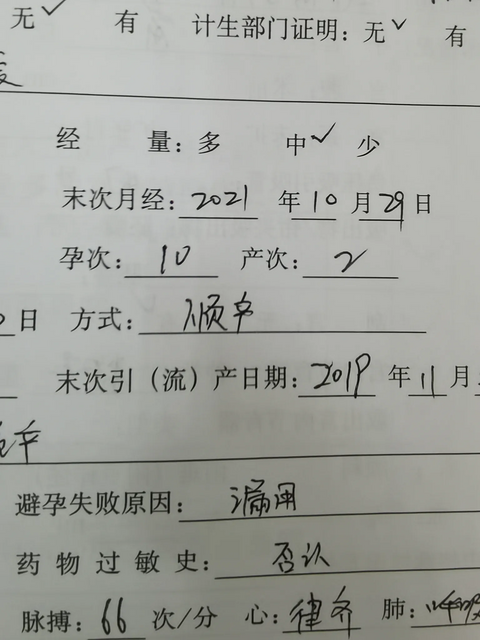 无✓ 有 计生部门证明：无✓ 有
经 量：多 中✓ 少
末次月经：2021 年 10 月 29 日
孕次：10 产次：2
日 方式：顺产
末次引（流）产日期：2019 年 11 月
避孕失败原因：漏用
药 物 过 敏 史：否认
脉搏：66 次/分 心：律齐 肺：